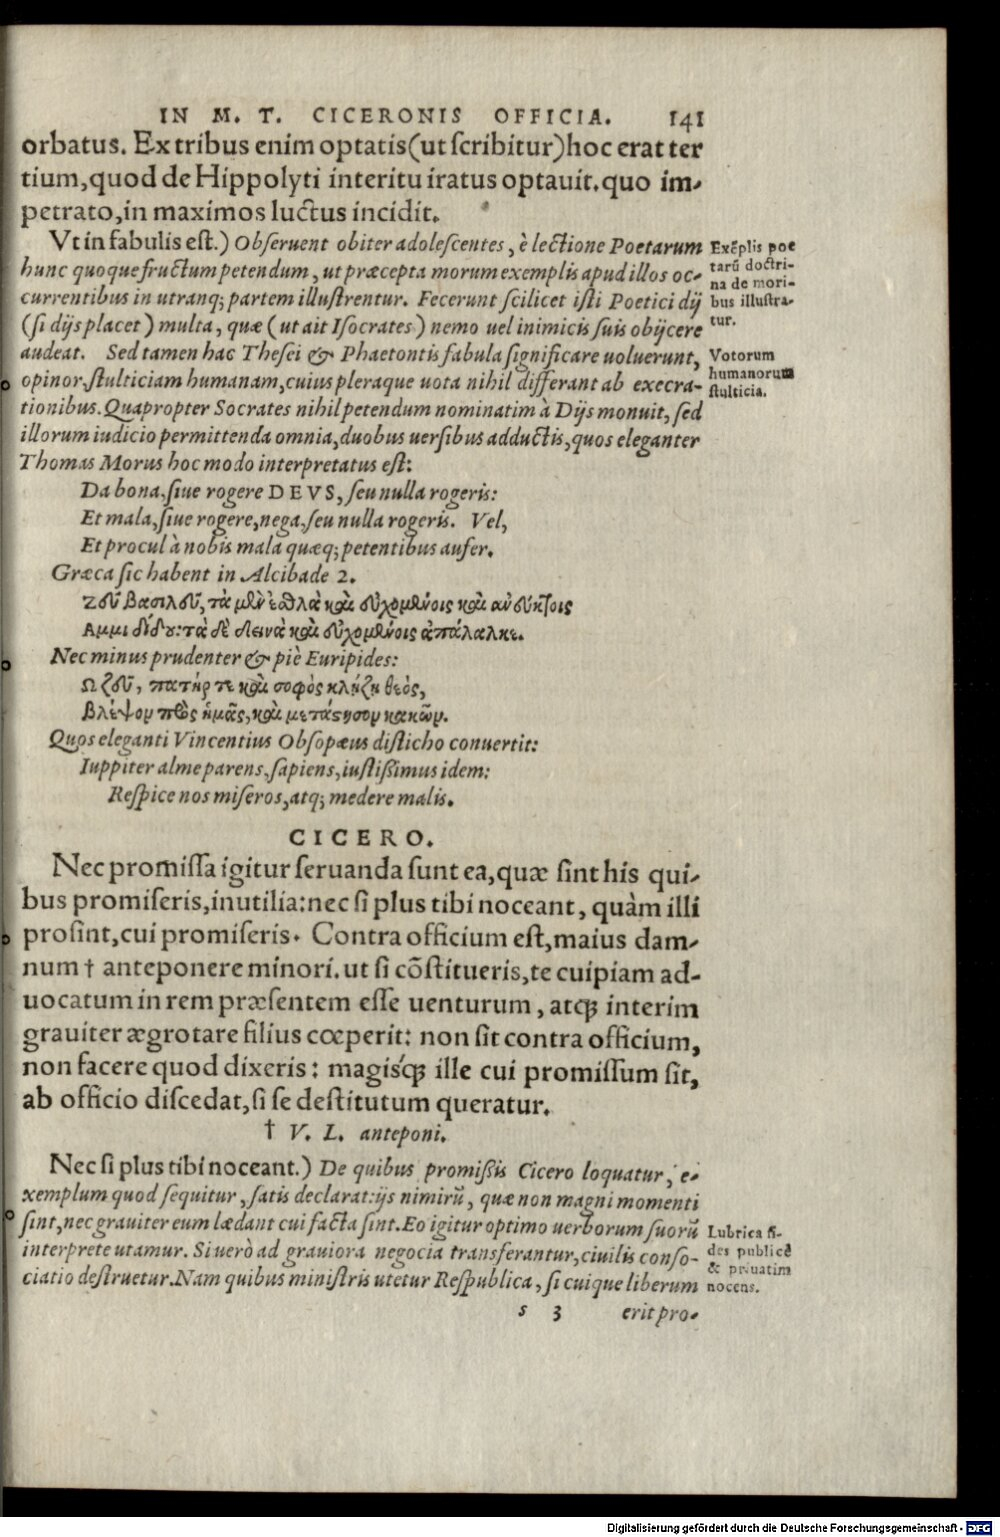 IN M. T. CICERONIS OFFICIA. 141
orbatus. Ex tribus enim optatis (ut scribitur) hoc erat ter
tium, quod de Hippolyti interitu iratus optauit. quo im-
petrato, in maximos luctus incidit.
Vt in fabulis est.) Obseruent obiter adolescentes, è lectione Poetarum
hunc quoque fructum petendum, ut præcepta morum exemplis apud illos oc-
currentibus in utranq; partem illustrentur. Fecerunt scilicet isti Poetici dij
(si dijs placet) multa, quæ (ut ait Isocrates) nemo uel inimicis suis obijcere
audeat. Sed tamen hac Thesei & Phaetontis fabula significare uoluerunt,
opinor, stulticiam humanam, cuius pleraque uota nihil differant ab execra-
tionibus. Quapropter Socrates nihil petendum nominatim à Dijs monuit, sed
illorum iudicio permittenda omnia, duobus uersibus adductis, quos eleganter
Thomas Morus hoc modo interpretatus est:
Exẽplis poe
tarũ doctri-
na de mori-
bus illustra-
tur.
Votorum
humanorum
stulticia.
Da bona, siue rogere DEVS, seu nulla rogeris:
Et mala, siue rogere, nega, seu nulla rogeris. Vel,
Et procul à nobis mala quæq; petentibus aufer.
Græca sic habent in Alcibade 2.
Ζεῦ βασιλεῦ, τὰ μὲν ἐσθλὰ καὶ εὐχομένοις καὶ ἀνεύκτοις
Αμμι δίδου: τὰ δὲ δεινὰ καὶ εὐχομένοις ἀπάλαλκε.
Nec minus prudenter & piè Euripides:
Ω ζεῦ, πατήρ τε καὶ σοφὸς κλήζῃ θεὸς,
βλέψον πρὸς ἡμᾶς, καὶ μετάστησον κακῶν.
Quos eleganti Vincentius Obsopæus disticho conuertit:
Iuppiter alme parens, sapiens, iustißimus idem:
Respice nos miseros, atq; medere malis.
CICERO.
Nec promissa igitur seruanda sunt ea, quæ sint his qui-
bus promiseris, inutilia: nec si plus tibi noceant, quàm illi
prosint, cui promiseris. Contra officium est, maius dam-
num † anteponere minori. ut si cõstitueris, te cuipiam ad-
uocatum in rem præsentem esse uenturum, atq; interim
grauiter ægrotare filius cœperit: non sit contra officium,
non facere quod dixeris: magisq́; ille cui promissum sit,
ab officio discedat, si se destitutum queratur.
† V. L. anteponi.
Nec si plus tibi noceant.) De quibus promißis Cicero loquatur, e-
xemplum quod sequitur, satis declarat: ijs nimirũ, quæ non magni momenti
sint, nec grauiter eum lædant cui facta sint. Eo igitur optimo uerborum suorũ
interprete utamur. Si uerò ad grauiora negocia transferantur, ciuilis conso-
ciatio destruetur. Nam quibus ministris utetur Respublica, si cuique liberum
Lubrica fi-
des publicè
& priuatim
nocens.
s 3 erit pro-
Digitalisierung gefördert durch die Deutsche Forschungsgemeinschaft - DFG